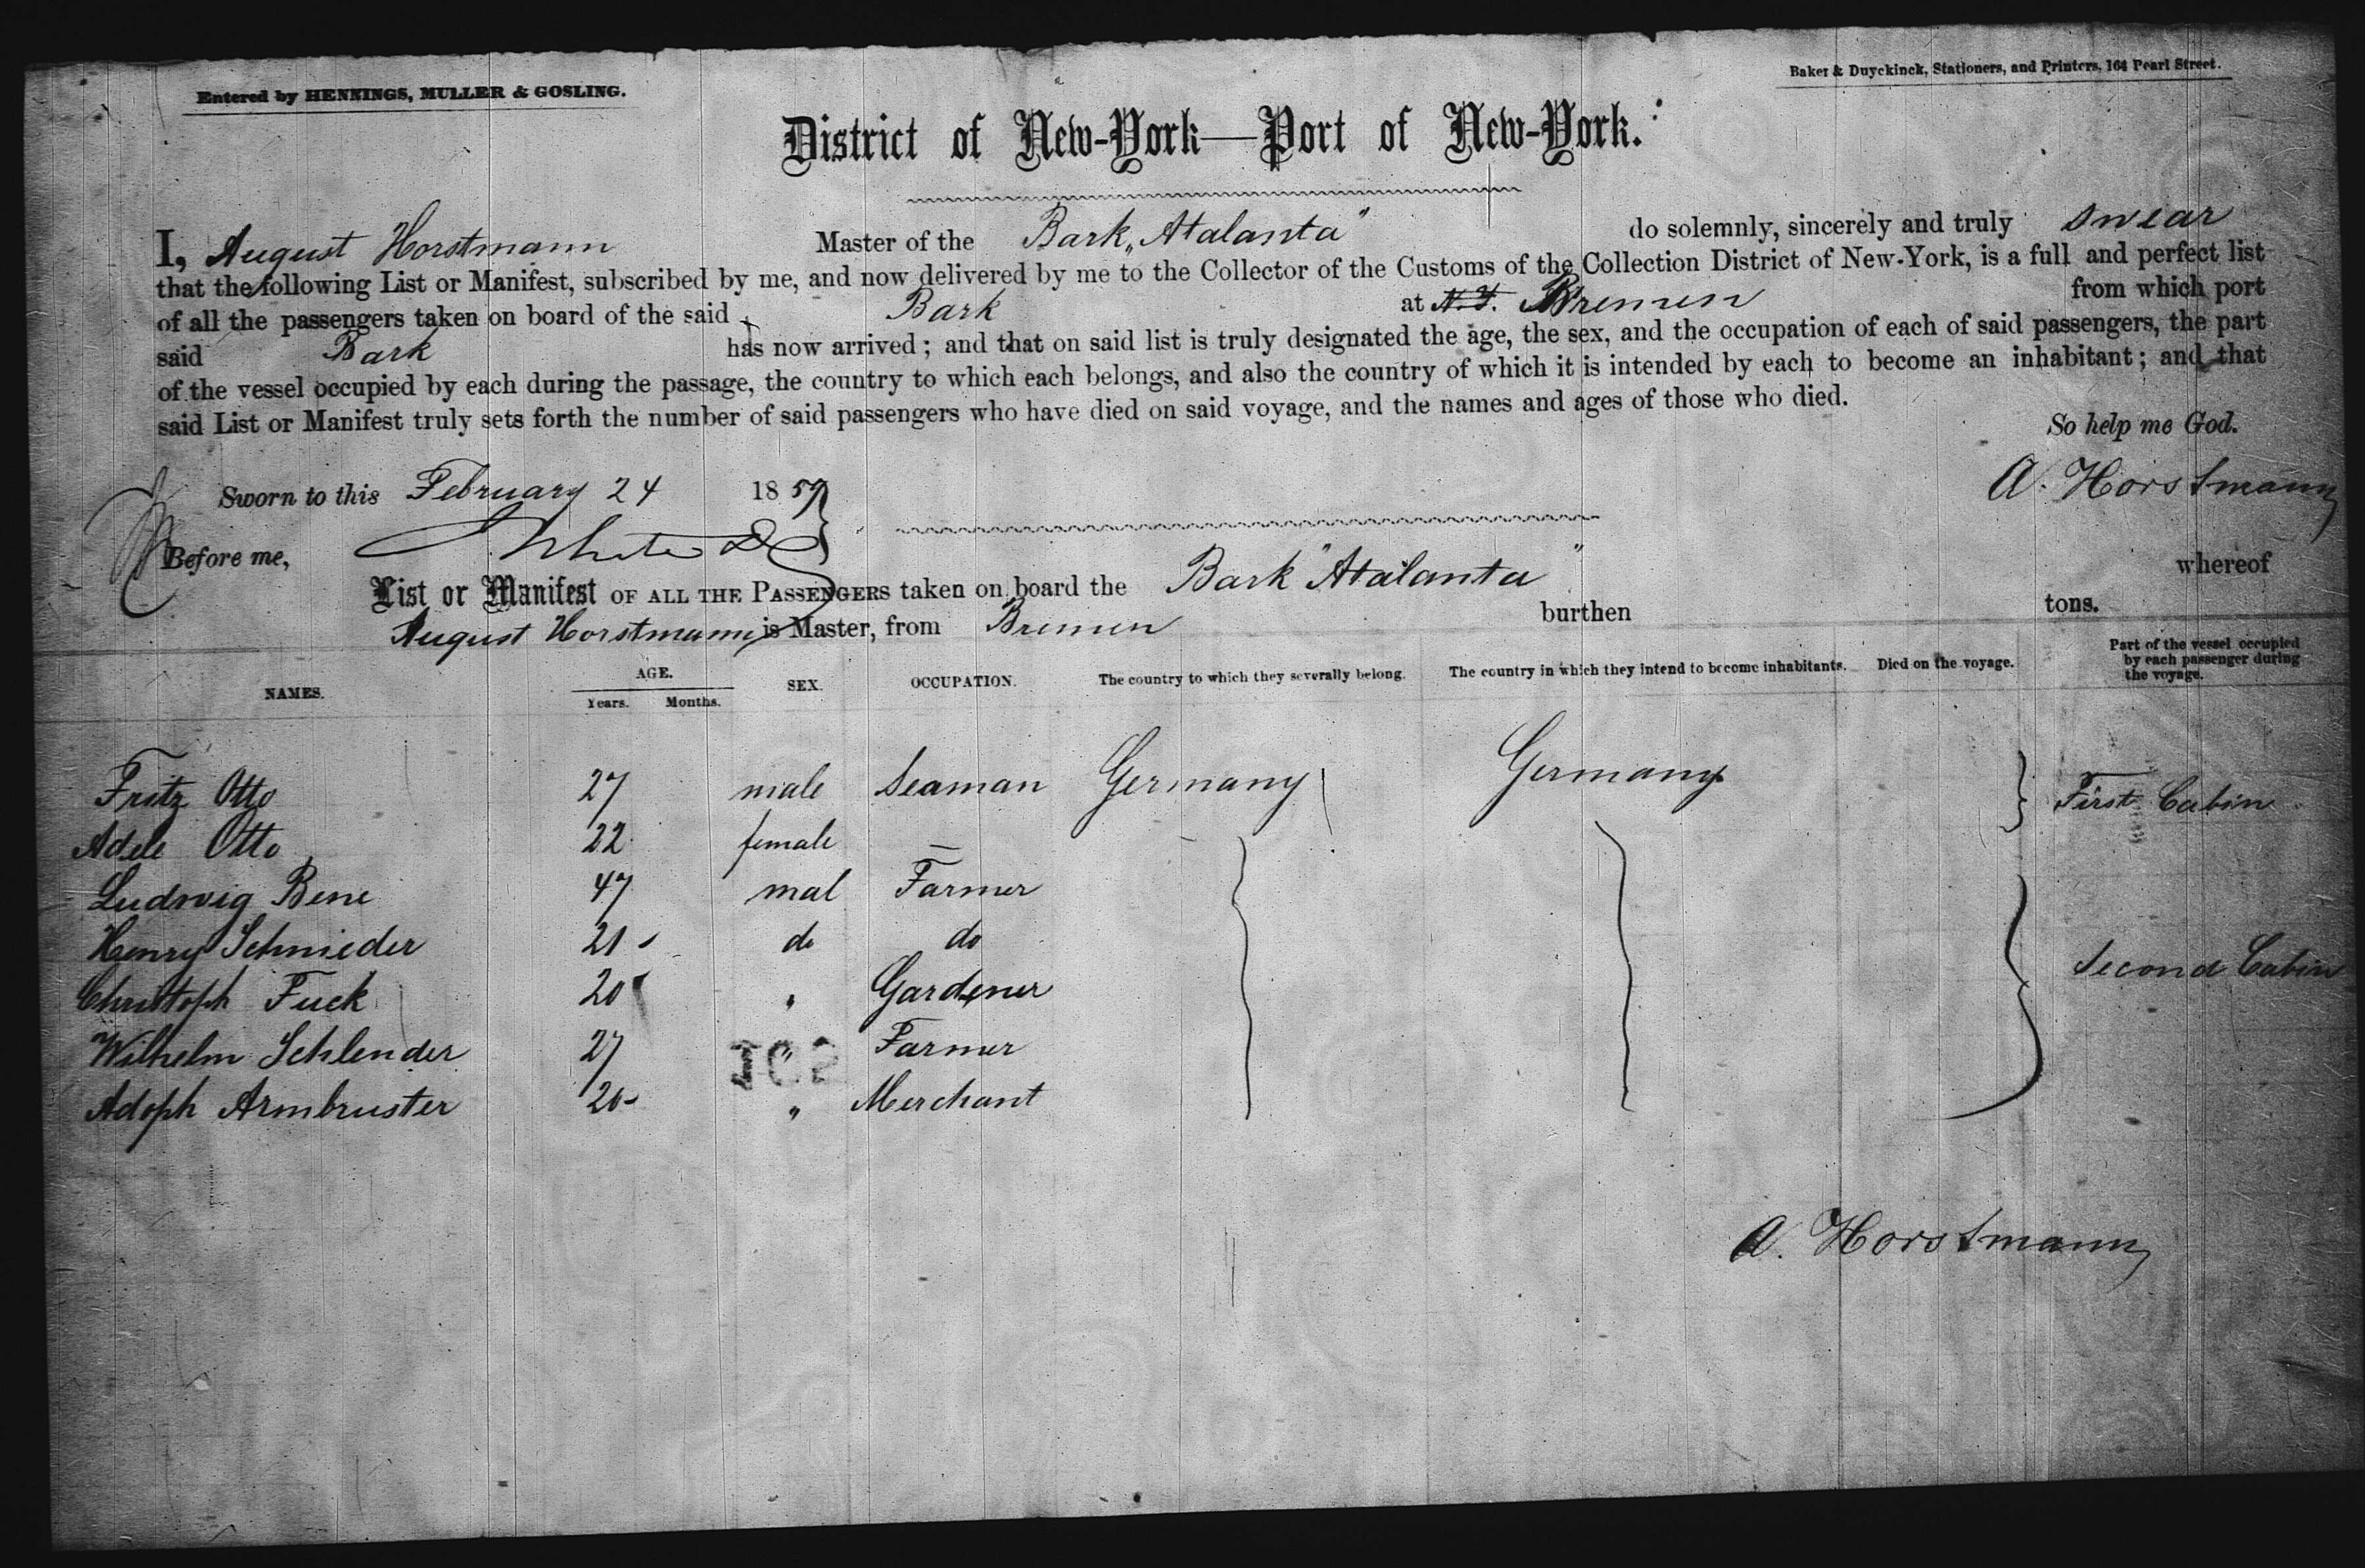 Entered by HENNINGS, MULLER & GOSLING.
Baker & Duyckinck, Stationers, and Printers, 164 Pearl Street.
District of New-York—Port of New-York.
I, August Horstmann Master of the Bark „Atalanta" do solemnly, sincerely and truly swear
that the following List or Manifest, subscribed by me, and now delivered by me to the Collector of the Customs of the Collection District of New-York, is a full and perfect list
of all the passengers taken on board of the said Bark at N.Y. Bremen from which port
said Bark has now arrived; and that on said list is truly designated the age, the sex, and the occupation of each of said passengers, the part
of the vessel occupied by each during the passage, the country to which each belongs, and also the country of which it is intended by each to become an inhabitant; and that
said List or Manifest truly sets forth the number of said passengers who have died on said voyage, and the names and ages of those who died.
So help me God.
Sworn to this February 24 1859
A. Horstmann
Before me, White
List or Manifest OF ALL THE PASSENGERS taken on board the Bark "Atalanta" whereof
August Horstmann is Master, from Bremen burthen tons.
NAMES. AGE. Years. Months. SEX. OCCUPATION. The country to which they severally belong. The country in which they intend to become inhabitants. Died on the voyage. Part of the vessel occupied by each passenger during the voyage.
Fritz Otto 27 male Seaman Germany Germany First Cabin
Adele Otto 22 female —
Ludwig Bene 47 mal Farmer
Henry Schnieder 21 do do Second Cabin
Christoph Fuck 20 " Gardener
Wilhelm Schlender 27 " Farmer
Adoph Armbruster 20 " Merchant
A. Horstmann